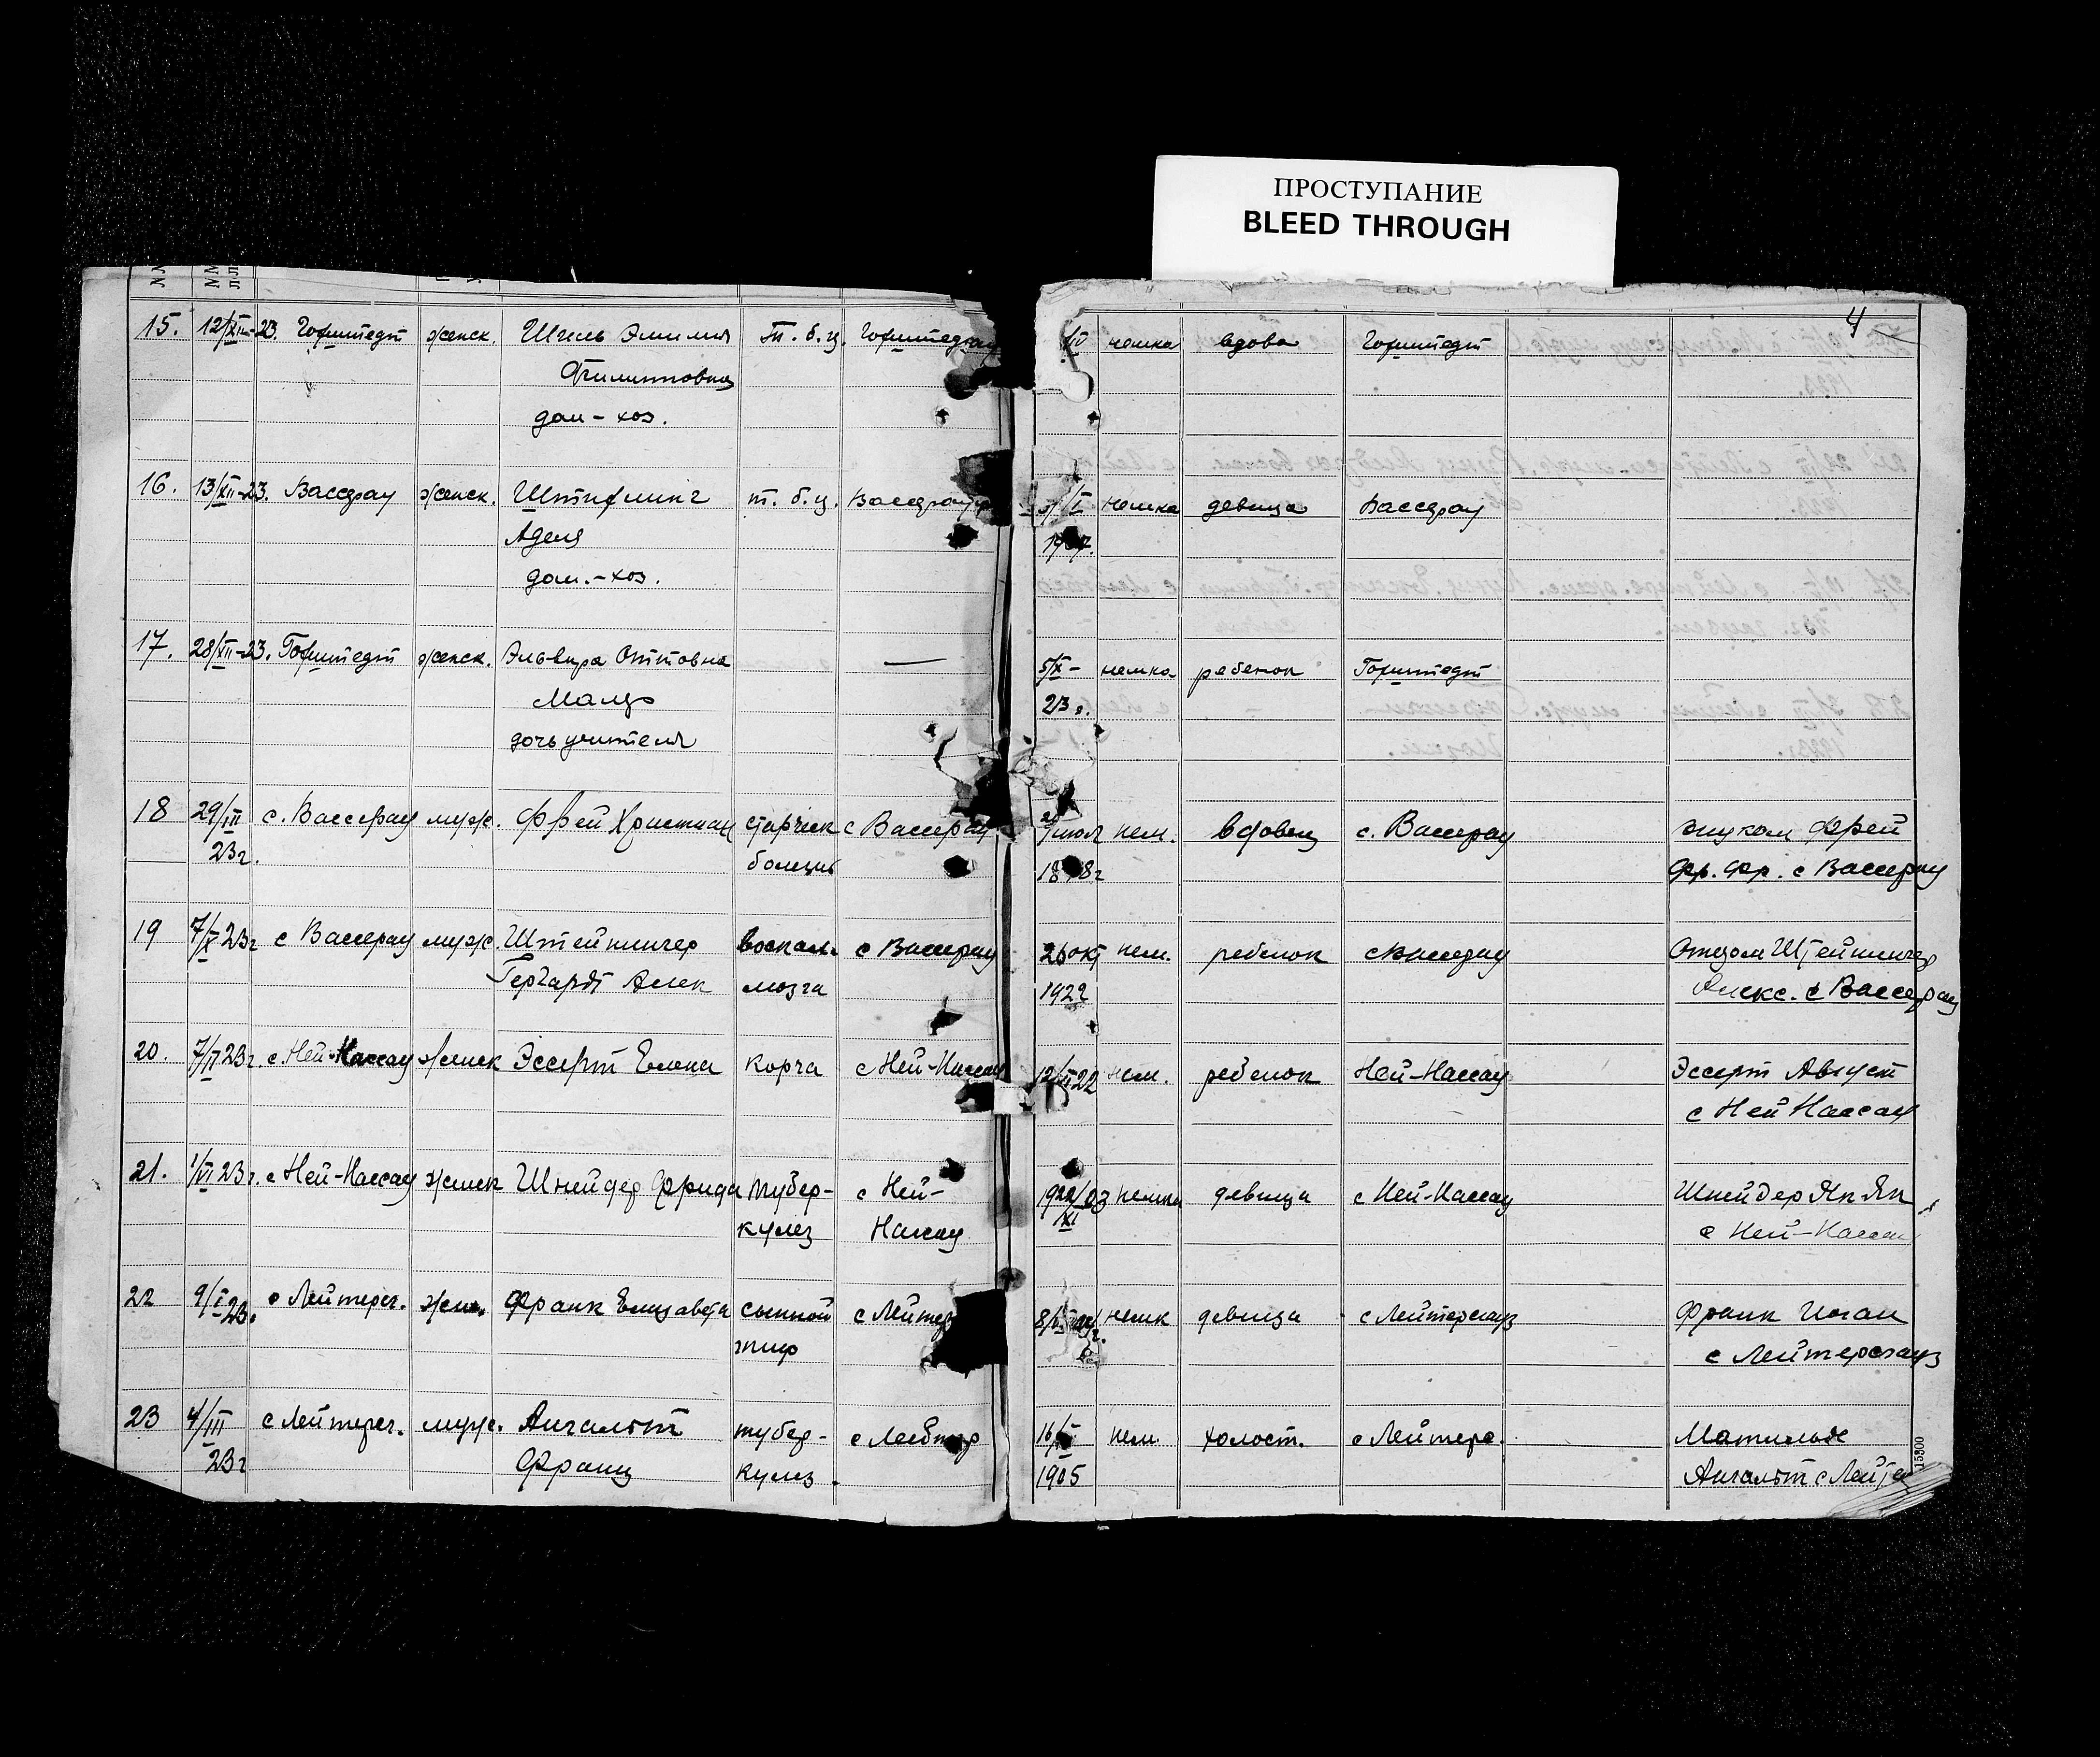 ПРОСТУПАНИЕ
BLEED THROUGH
4
15. 12/XII-23. Гофштедт женск. Шиель Эмилия т. б. ц. Гофштедт IV немка вдова Гофштедт
Филипповна
дом-хоз.
16. 13/XII-23. Вассерау женск. Штифлинг т. б. ц. Вассерау I немка девица Вассерау
Аделя
дом.-хоз.
17. 28/XII-23. Гофштедт женск. Эльвира Оттовна — 5/X- немка ребенок Гофштедт
Малцо 23 г.
дочь учителя
18 29/III с. Вассерау муж. Фрей Христиан старческ с Вассерау июля нем. вдовец с. Вассерау внуком Фрей
23г. болезнь Фр. Фр. с Вассерау
19 7/X 23г с Вассерау муж. Штейнингер воспал. с Вассерау 26 окт нем. ребенок с Вассерау Отцом Штейнингер
Гергардт Алек мозга 1922 Алекс. с Вассерау
20. 7/II 23г. с. Ней-Нассау женск Эссерт Елена корча с Ней-Нассау 12/ 22 нем. ребенок Ней-Нассау Эссерт Август
с Ней Нассау
21. 1/VI 23г. с Ней-Нассау женск Шнейдер Фрида тубер- с Ней- немка девица с Ней-Нассау Шнейдер Як Як
кулез Нассау XI с Ней-Нассау
22 9/I 23. с Лейтерсг. жен. Франк Елизавета сыпной с Лейтер немк девица с Лейтерсгауз Франк Иоган
тиф с Лейтерсгауз
23 4/III с Лейтерсг. муж. Ангальт тубер- с Лейтер 16/ нем холост. с Лейтерс. Матильде
23г Франц кулез. 1905 Ангальт с Лейте
15300